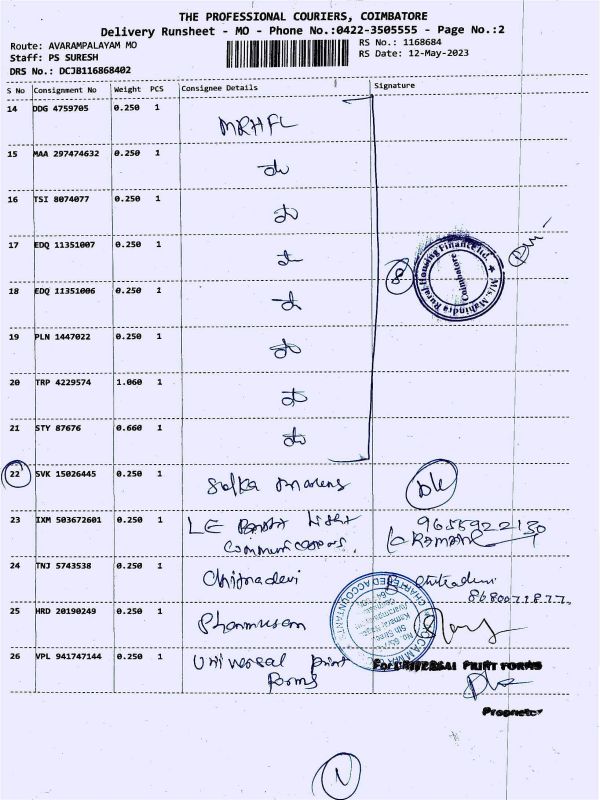 THE PROFESSIONAL COURIERS, COIMBATORE
Delivery Runsheet - MO - Phone No.:0422-3505555 - Page No.:2
Route: AVARAMPALAYAM MO RS No.: 1168684
Staff: PS SURESH RS Date: 12-May-2023
DRS No.: DCJB116868402
S No Consignment No Weight PCS Consignee Details Signature
14 DDG 4759705 0.250 1 MRHFL
15 MAA 297474632 0.250 1
16 TSI 8074077 0.250 1
17 EDQ 11351007 0.250 1
18 EDQ 11351006 0.250 1
M/s. Mahindra Rural Housing Finance Ltd. Coimbatore
19 PLN 1447022 0.250 1
20 TRP 4229574 1.060 1
21 STY 87676 0.660 1
22 SVK 15026445 0.250 1
23 IXM 503672601 0.250 1 LE Light 9655922130
Communications. RAMAN
24 TNJ 5743538 0.250 1 Chitradevi Chitradevi
8680071877
CHARTERED ACCOUNTANT
25 HRD 20190249 0.250 1
26 VPL 941747144 0.250 1 Universal print For UNIVERSAL PRINT FORMS
Forms
Proprietor